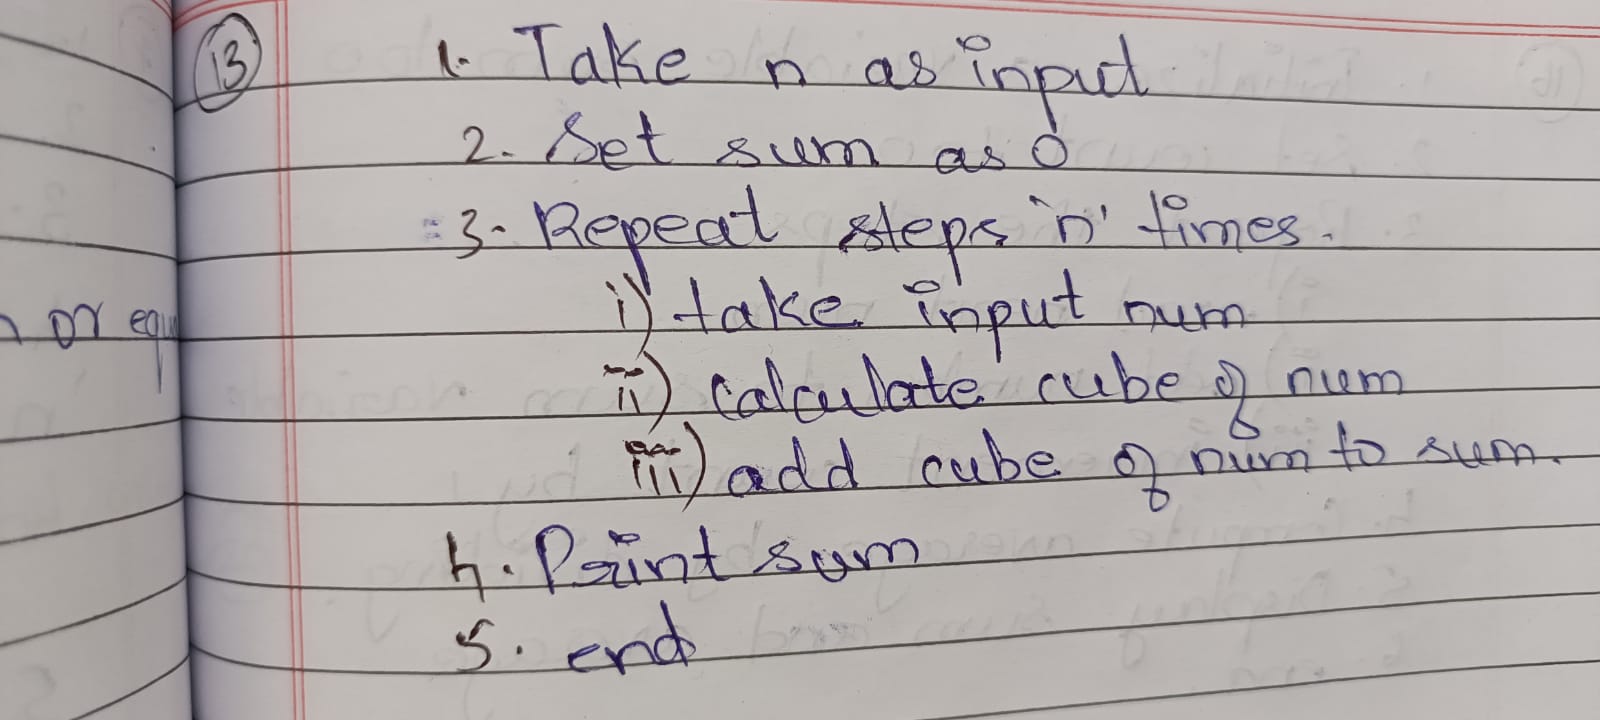 13
1. Take n as input
2. Set sum as 0
3. Repeat steps 'n' times.
i) take input num
or equ
ii) calculate cube of num
iii) add cube of num to sum.
4. Print sum
5. end